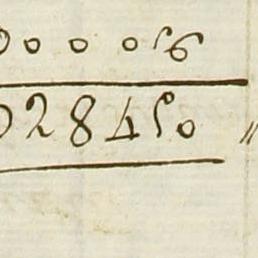 000056
028450 "